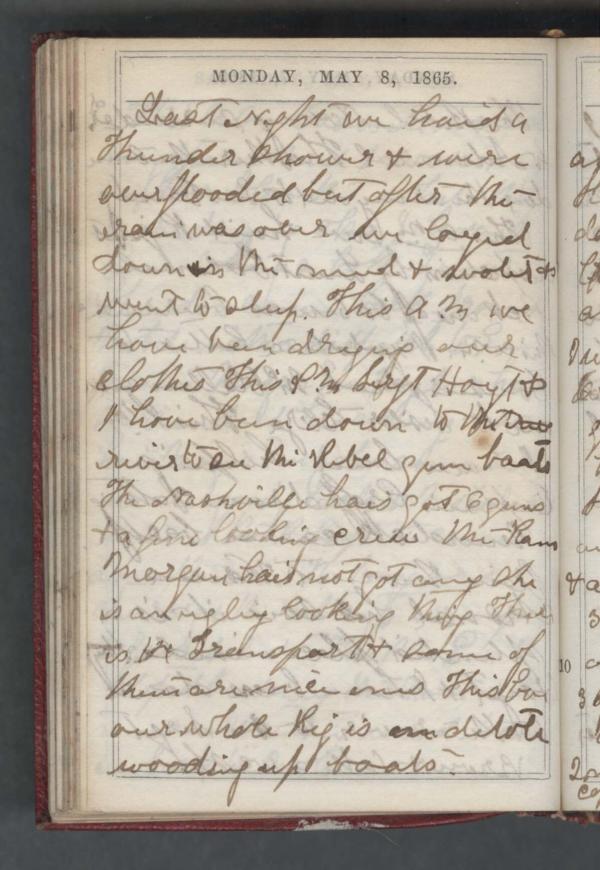 MONDAY, MAY 8, 1865.
Last Night we haid a
Thunder Shower & were
overflooded but after the
rain was over we layed
down in the mud & &
went to sleep. This A.M we
have been drying our
clothes This P.M Sergt Hoyt &
I have been down to the
river to see the Rebel gun boats
The Nashville has got 6 guns
& a fine looking crew the Ram
Morgan has not got any She
is an ugley looking thing There
is Transport & some of
them are nice ones This
our whole Rig is on
wooding up boats.
10